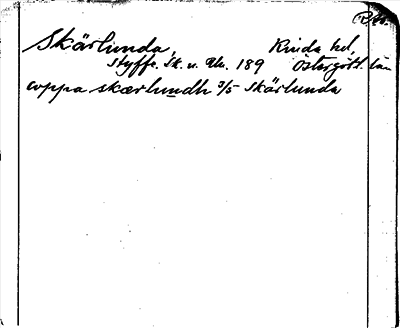 Skärlunda, Kinda hd,
Styffe. Sk. u. Un. 189 Östergötl. län
coppa skærlundh 3/5 Skärlunda